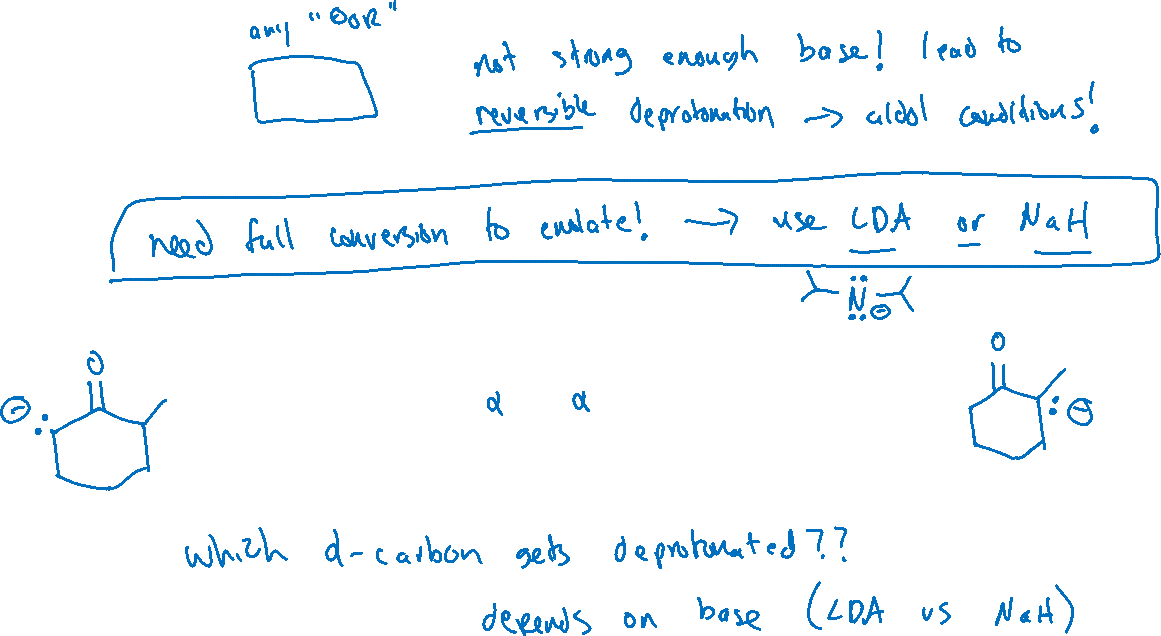 any "⊖OR"
not strong enough base! lead to
reversible deprotonation → aldol conditions!
need full conversion to enolate! → use LDA or NaH
N ⊖
O
O
⊖
α α
⊖
which α-carbon gets deprotonated??
depends on base (LDA vs NaH)